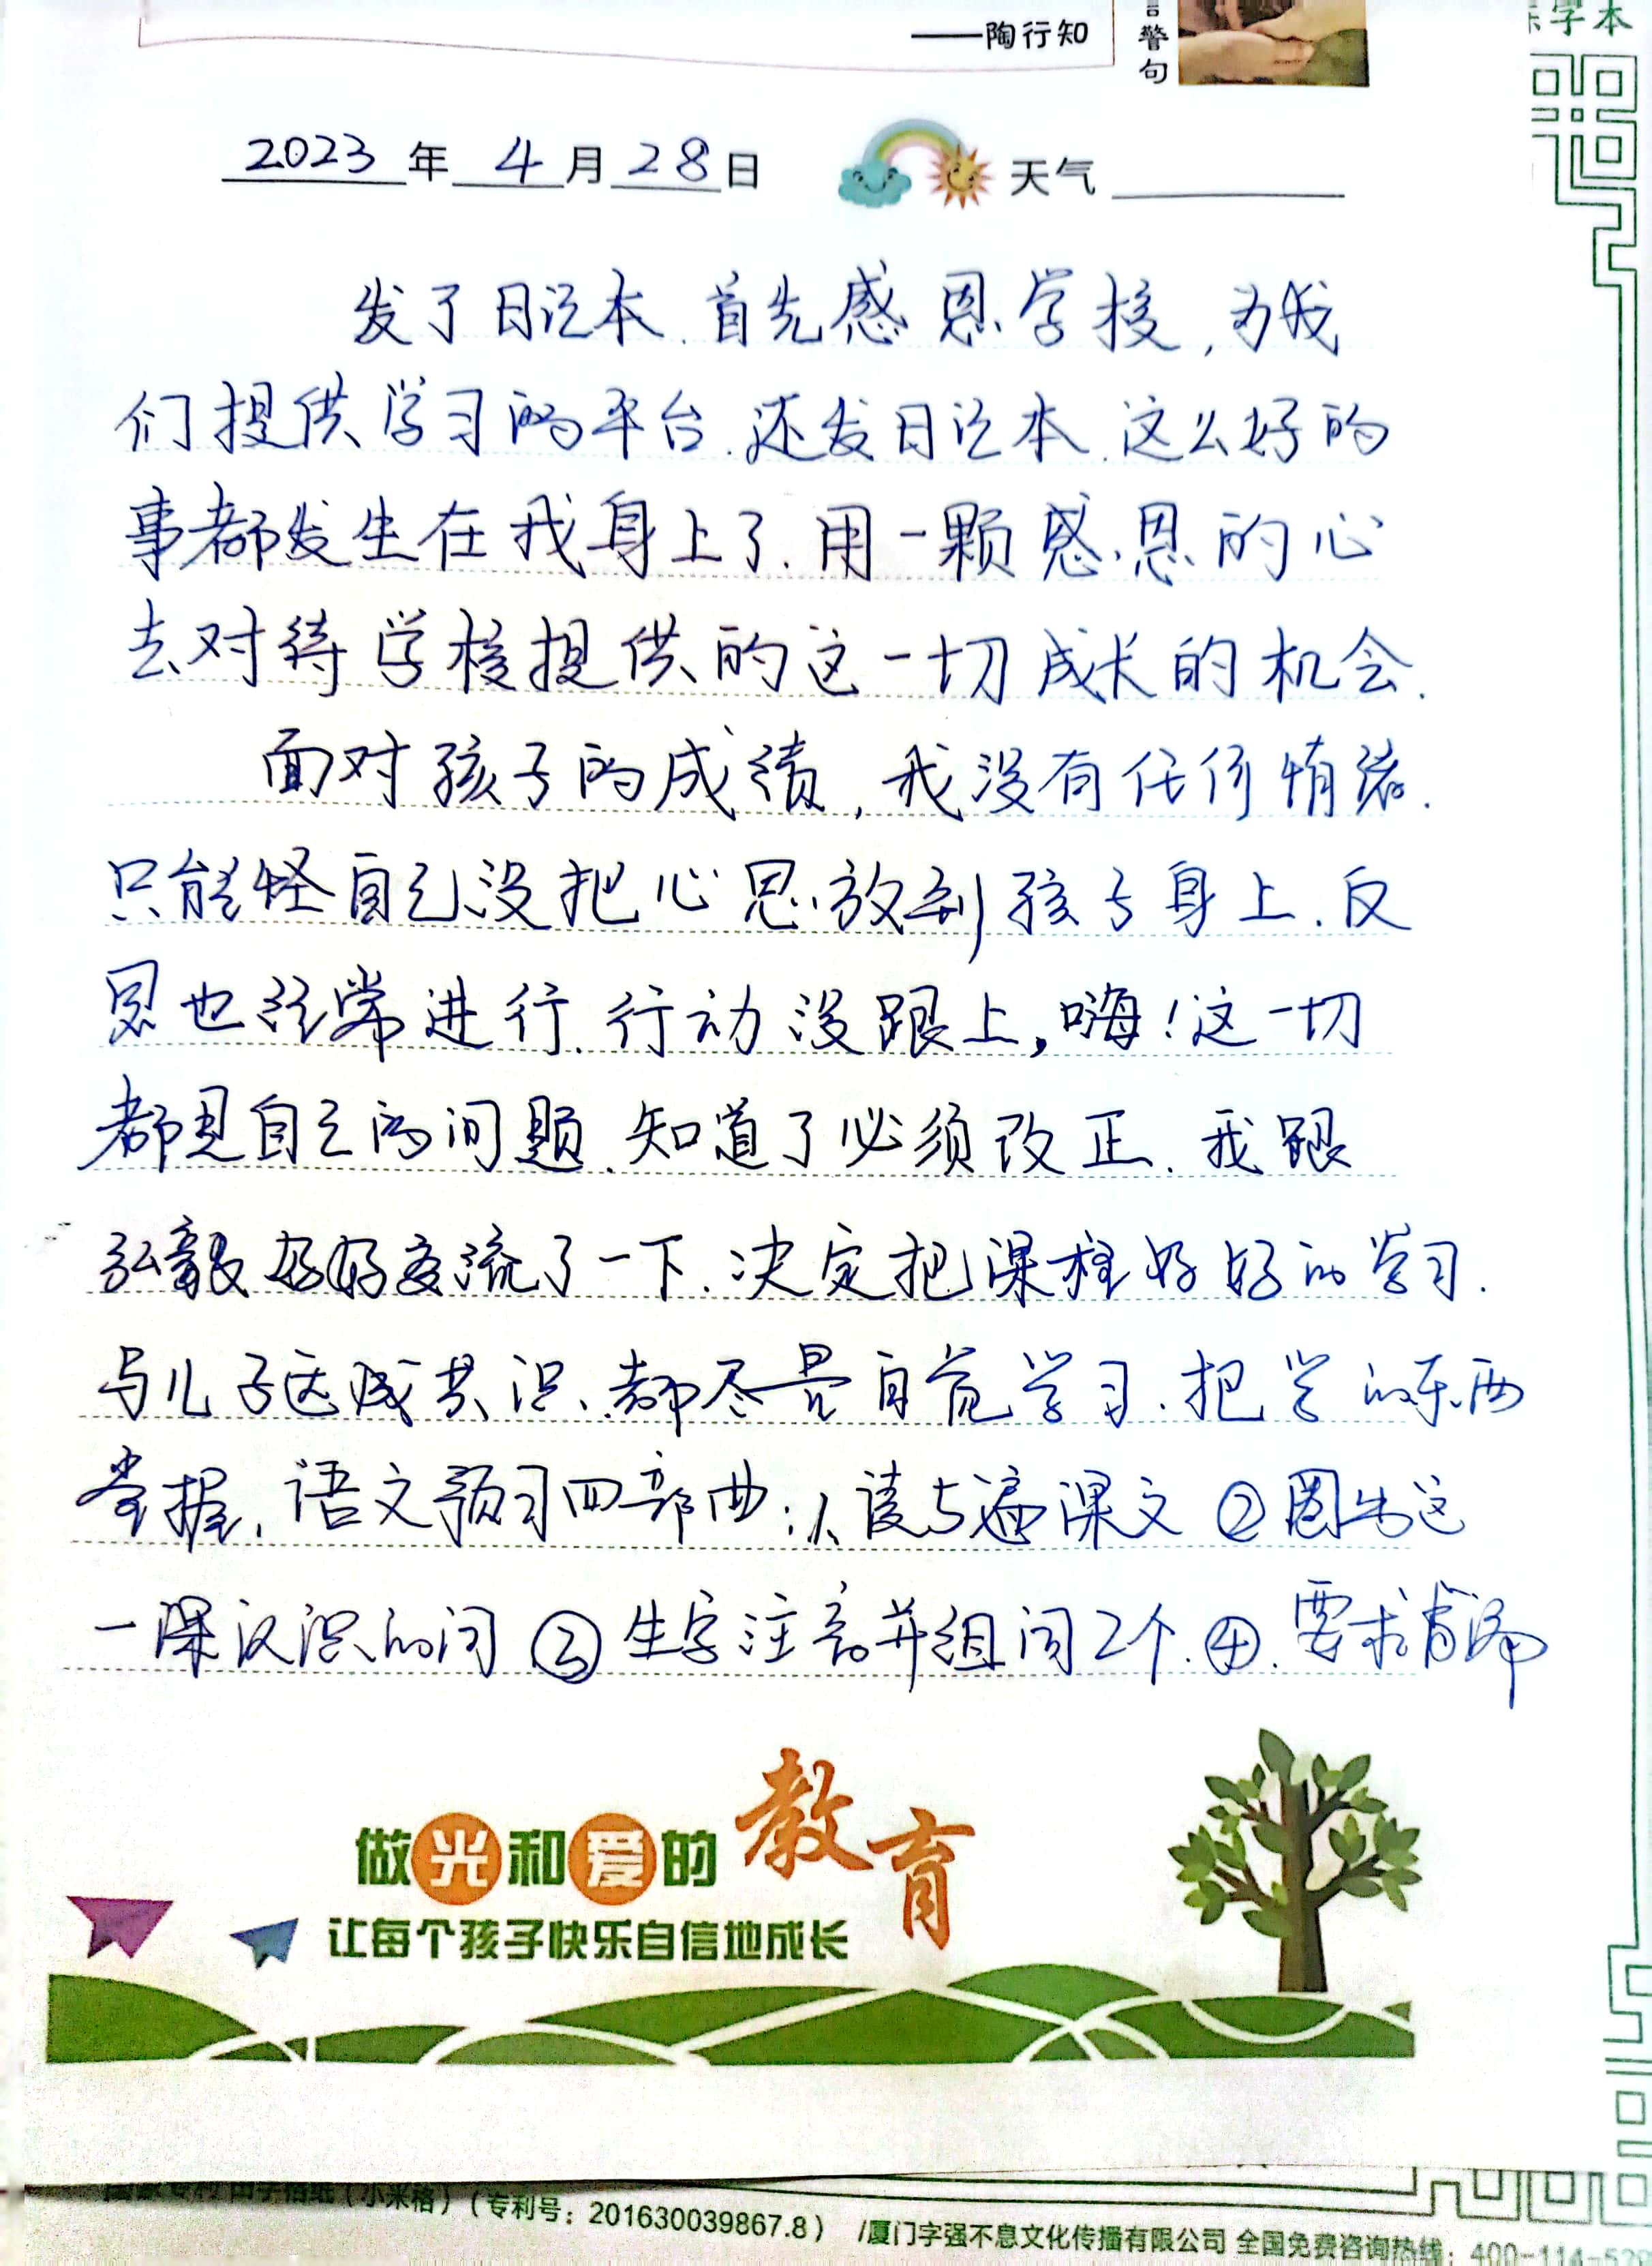 ——陶行知
言警句
字本
2023年4月28日 天气
发了日记本.首先感恩学校,为我
们提供学习的平台.还发日记本.这么好的
事都发生在我身上了.用一颗感恩的心
去对待学校提供的这一切成长的机会.
面对孩子的成绩,我没有任何情绪.
只能怪自己没把心思放到孩子身上.反
思也经常进行.行动没跟上,嗨!这一切
都是自己的问题.知道了必须改正.我跟
弘毅好好交流了一下.决定把课程好好的学习.
与儿子达成共识、都尽量自觉学习.把学的东西
掌握.语文预习四部曲:1、读5遍课文 ②圈出这
一课认识的词 ③生字注音并组词2个.④.要求背诵
做光和爱的教育
让每个孩子快乐自信地成长
田字格纸(小米格)(专利号:201630039867.8) /厦门字强不息文化传播有限公司 全国免费咨询热线:400-114-528